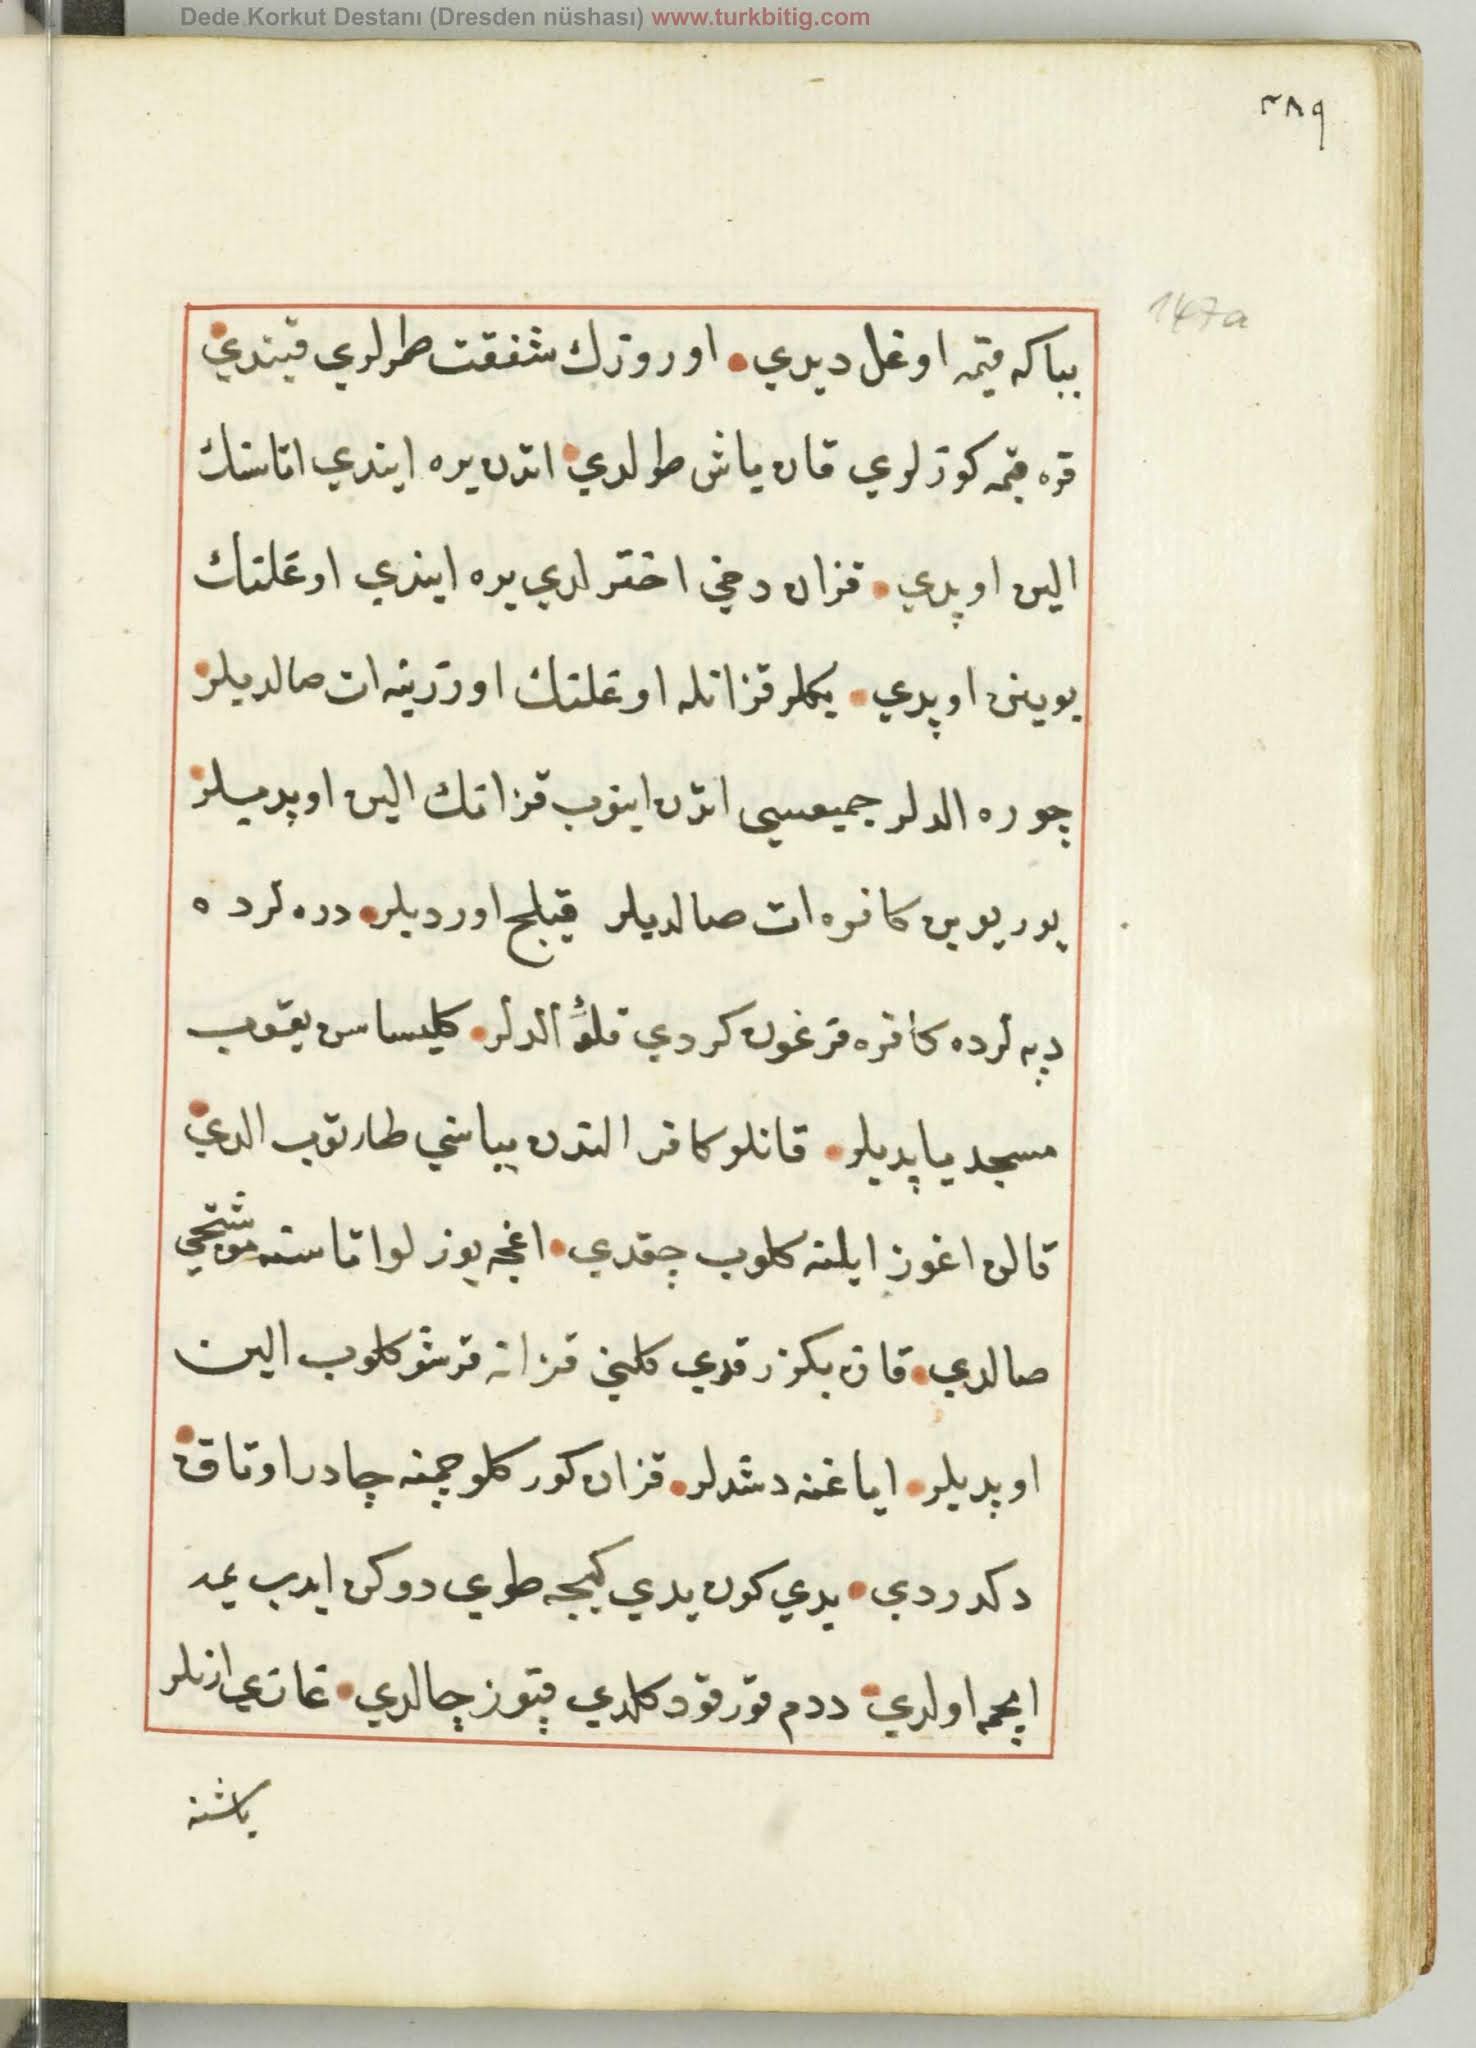 Dede Korkut Destanı (Dresden nüshası) www.turkbitig.com
٢٨٩
147a
بباكه قيمه اوغل ديدي اوروزك شفقت طمرلري قيندي
قره قيمه كوزلري قان ياش طولدي اتدن يره ايندي اتاسنك
الين اوپدي قزان دخي اخترلدي يره ايندي اوغلنك
بوينن اوپدي بكلر قزانله اوغلنك اوزرينه ات صالديلر
چوره الدلر جميعسي اتدن اينوب قزانك الين اوپديلر
يوريوين كافره ات صالديلر قيلچ اورديلر دره لرده
دپه لرده كافره قرغون كردي قلهٔ الدلر كليساسن يقوب
مسجد ياپديلر قانلو كافر الندن بباسني طارتوب الدي
قالن اغوز ايلنه كلوب چقدي اغجه يوزلو اناسنه موشتجي
صالدي قاز بكزر قزي كليني قزانه قرشو كلوب الين
اوپديلر اياغنه دشدلر قزان كوركلو چمنه چادر اوتاق
دكدردي يدي كون يدي كيجه طوي دوكن ايدب يمه
ايچمه اولدي ددم قورقود كلدي قپوز چالدي غازي ارنلر
باشنه